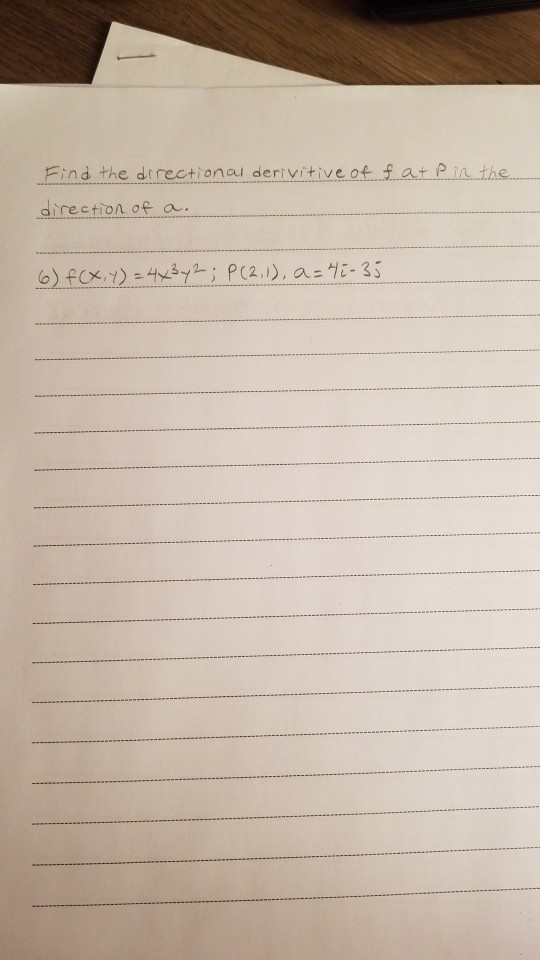 Find the directional derivitive of f at P in the
direction of a.
6) f(x,y) = 4x³y²; P(2,1), a = 4i - 3j